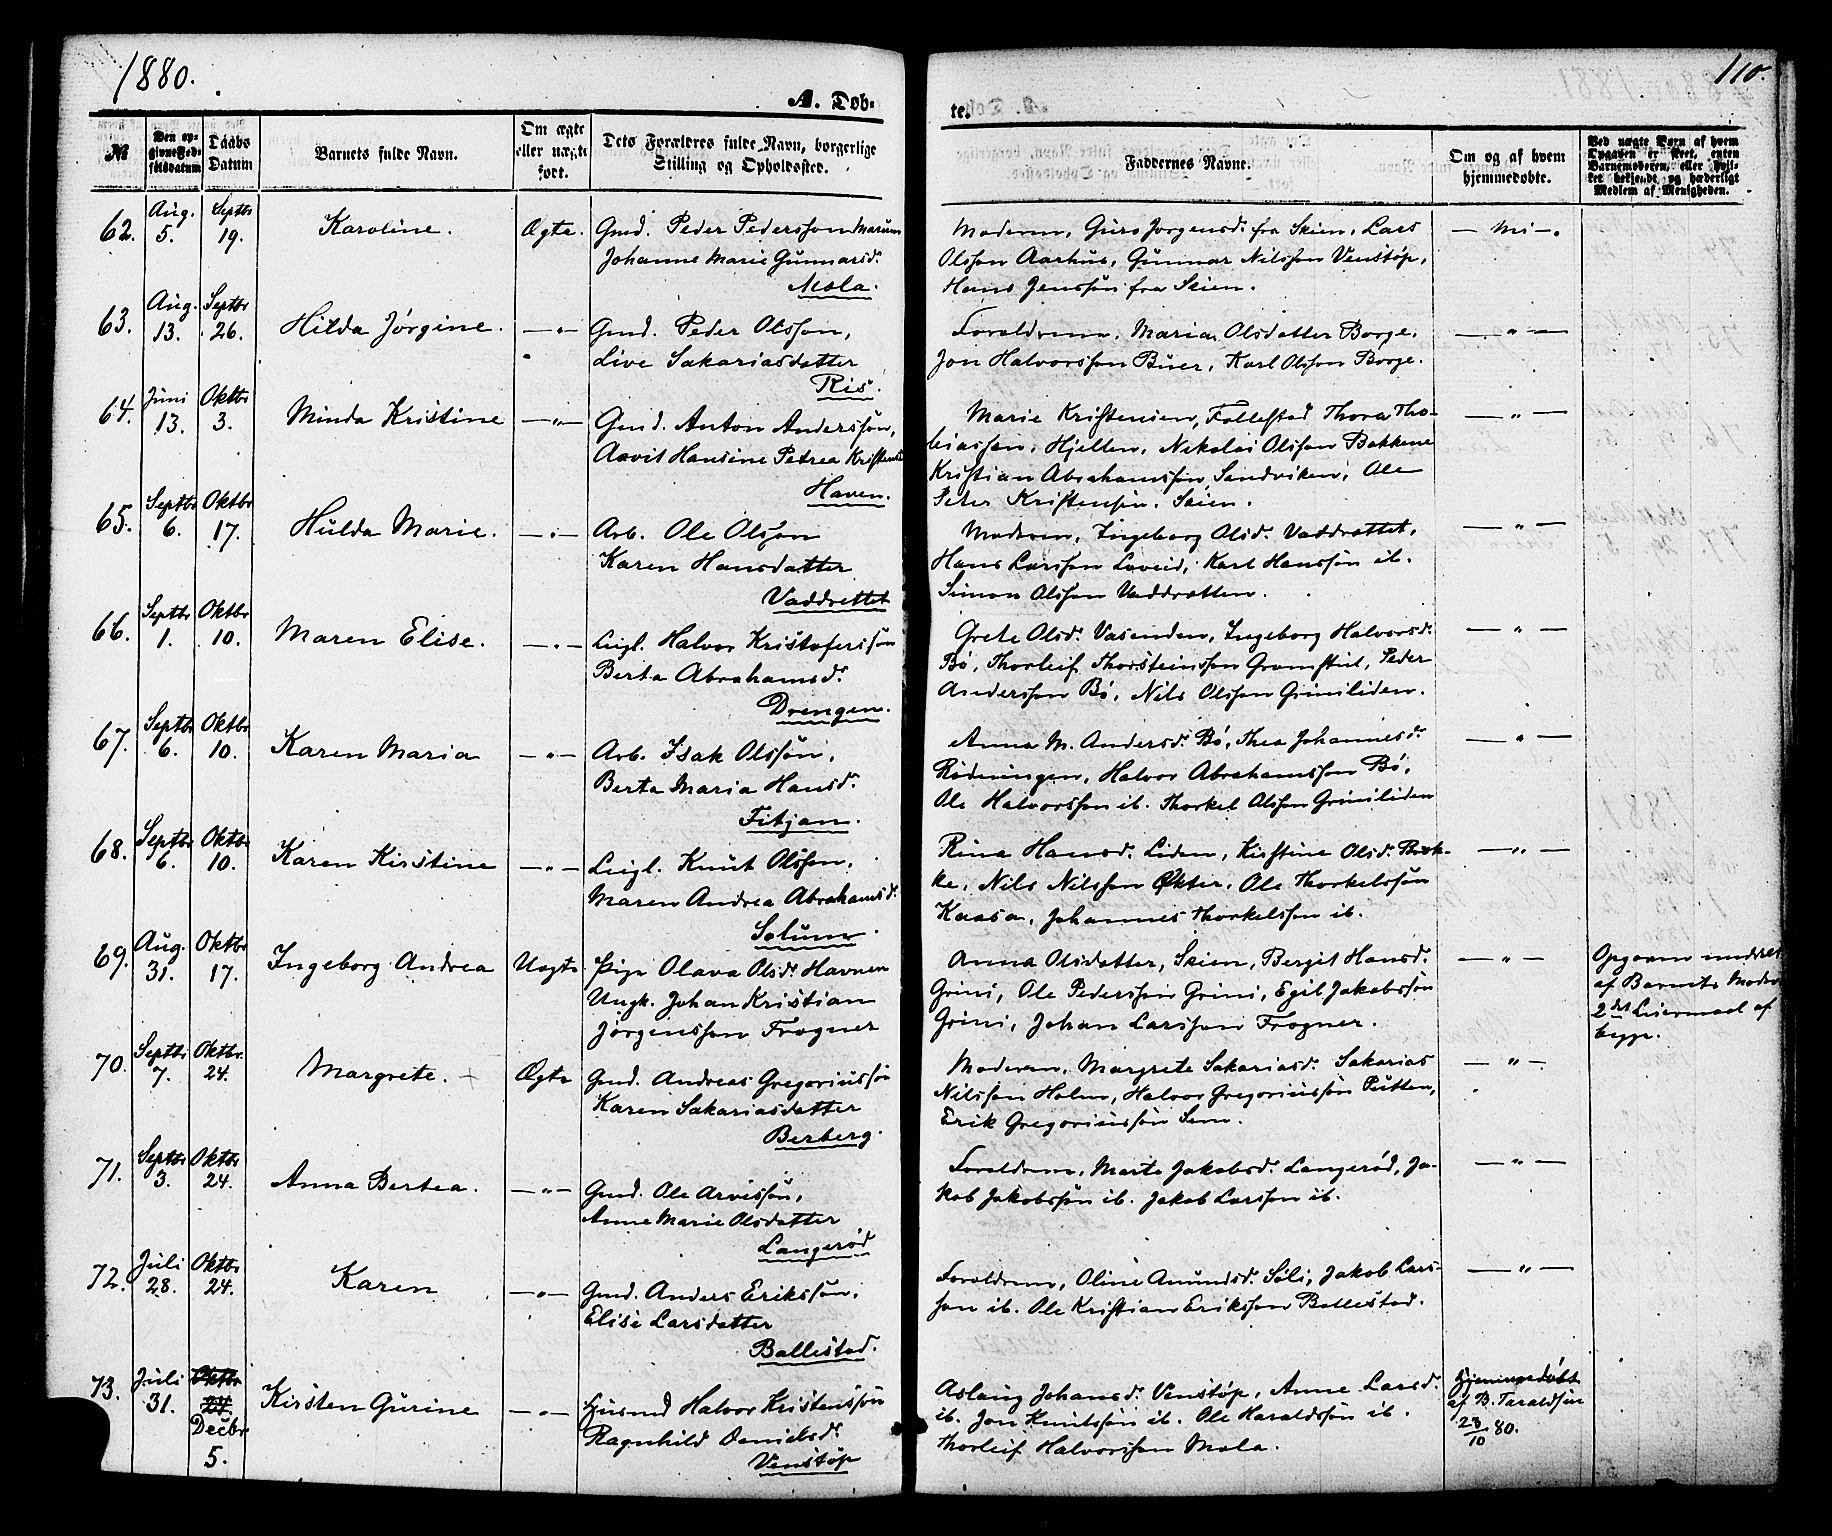 1880.
110.
A. Døb-
te.
№
Den op-
givne Fød-
selsdatum
Daabs
Datum
Barnets fulde Navn.
Om ægte
eller uægte
født.
Dets Forældres fulde Navn, borgerlige
Stilling og Opholdssted.
Faddernes Navne.
Om og af hvem
hjemmedøbte.
Ved uægte Børn af hvem
Opgaven er skeet, enten
Barnemoderen, eller hvil-
ket bekjendt og hæderligt
Medlem af Menigheden.
62. Aug. 5. Septbr 19. Karoline. Ægte. Gmd. Peder Pederssøn
Johanne Marie Gunnarsd.
Mæla.
Moderen, Guro Jørgensd. fra Skien, Lars
Olssøn Aarhus, Gunnar Nilssøn Venstøp,
Hans Jenssøn fra Skien.
— Nei —.
63. Aug. 13. Septbr 26. Hilda Jørgine. — " — Gmd. Peder Olssøn,
Live Sakariasdatter
Ris.
Forældrene, Maria Olsdatter Borge,
Jon Halvorssøn Buer, Karl Olssøn Borge.
— " —
64. Juni 13. Oktbr 3. Minda Kristine — " — Gmd. Anton Anderssøn,
Hansine Petrea
Haven.
Marie Kristensen, Follestad Thora Tho-
biassøn, Hjellen, Nikolai Olssøn Bakkene
Kristian Abrahamssøn, Sandviken, Ole
Peter Kristensøn. Skien.
— " —
65. Septbr 6. Oktbr 17. Hulda Marie. — " — Arb. Ole Olssøn
Karen Hansdatter
Vaddrettet
Moderen, Ingeborg Olsd. Vaddrættet,
Hans Larssøn Løveid, Karl Hanssøn ib.
Simon Olssøn Vaddrætten.
— " —
66. Septbr 1. Oktbr 10. Maren Elise. — " — Leigl. Halvor Kristoferssøn
Berta Abrahamsd.
Drengen.
Grete Olsd. Vasenden, Ingeborg Halvorsd.
Bø, Thorleif Thorsteinssøn Gromstul, Peder
Anderssøn Bø, Nils Olssøn Griniliden.
— " —
67. Septbr 6. Oktbr 10. Karen Maria — " — Arb. Isak Olssøn,
Berta Maria Hansd.
Fitjan.
Anna M. Andersd. Bø, Thea Johannesd.
Rødningen, Halvor Abrahamssøn Bø,
Ole Halvorssøn ib. Thorkel Olssøn Griniliden
— " —
68. Septbr 6. Oktbr 10. Karen Kirstine — " — Leigl. Knut Olssøn,
Maren Andrea Abrahamsd.
Solum.
Rina Hansd. Liden, Kirstine Olsd. Bak-
ke, Nils Nilssøn Økter, Ole Thorkelssøn
Kaasa, Johannes Thorkelssøn ib.
— " —
69. Aug. 31. Oktbr 17. Ingeborg Andrea Uægte. Pige Olava Olsd. Havnen
Ungk. Johan Kristian
Jørgenssøn Frogner
Anna Olsdatter, Skien, Bergit Hansd.
Grini, Ole Pederssøn Grini, Egil Jakobssøn
Grini, Johan Larssøn Frogner.
— " —
Opgaven
af Barnets Moder
2det Leiermaal af
begge.
70. Septbr 7. Oktbr. 24. Margrete. Ægte Gmd. Andreas Gregoriussøn
Karen Sakariasdatter
Berberg.
Moderen, Margrete Sakariasd. Sakarias
Nilssøn Holm, Halvor Gregoriussøn Putten,
Erik Gregoriussøn Sem.
— " —
71. Septbr 3. Oktbr 24. Anna Bertea. — " — Gmd. Ole Arvessøn,
Anne Marie Olsdatter
Langerød
Forældrene, Marte Jakobsd. Langerød, Ja-
kob Jakobssøn ib. Jakob Larssøn ib.
— " —
72. Juli 28. Oktbr 24. Karen — " — Gmd. Anders Erikssøn,
Elise Larsdatter
Ballestad.
Forældrene, Oline Amundsd. Søli, Jakob Lars-
søn ib. Ole Kristian Erikssøn Ballestad.
— " —
73. Juli 31. Oktbr 24. Decbr 5. Kirsten Gurine — " — Husmd Halvor Kristenssøn
Ragnhild Danielsd.
Venstøp
Aslaug Johansd. Venstøp, Anne Larsd.
ib. Jon Knutssøn ib. Ole Haraldssøn ib.
Thorleif Halvorssøn Mæla.
Hjemmedøbt
af B. Taraldsen
23/10 80.